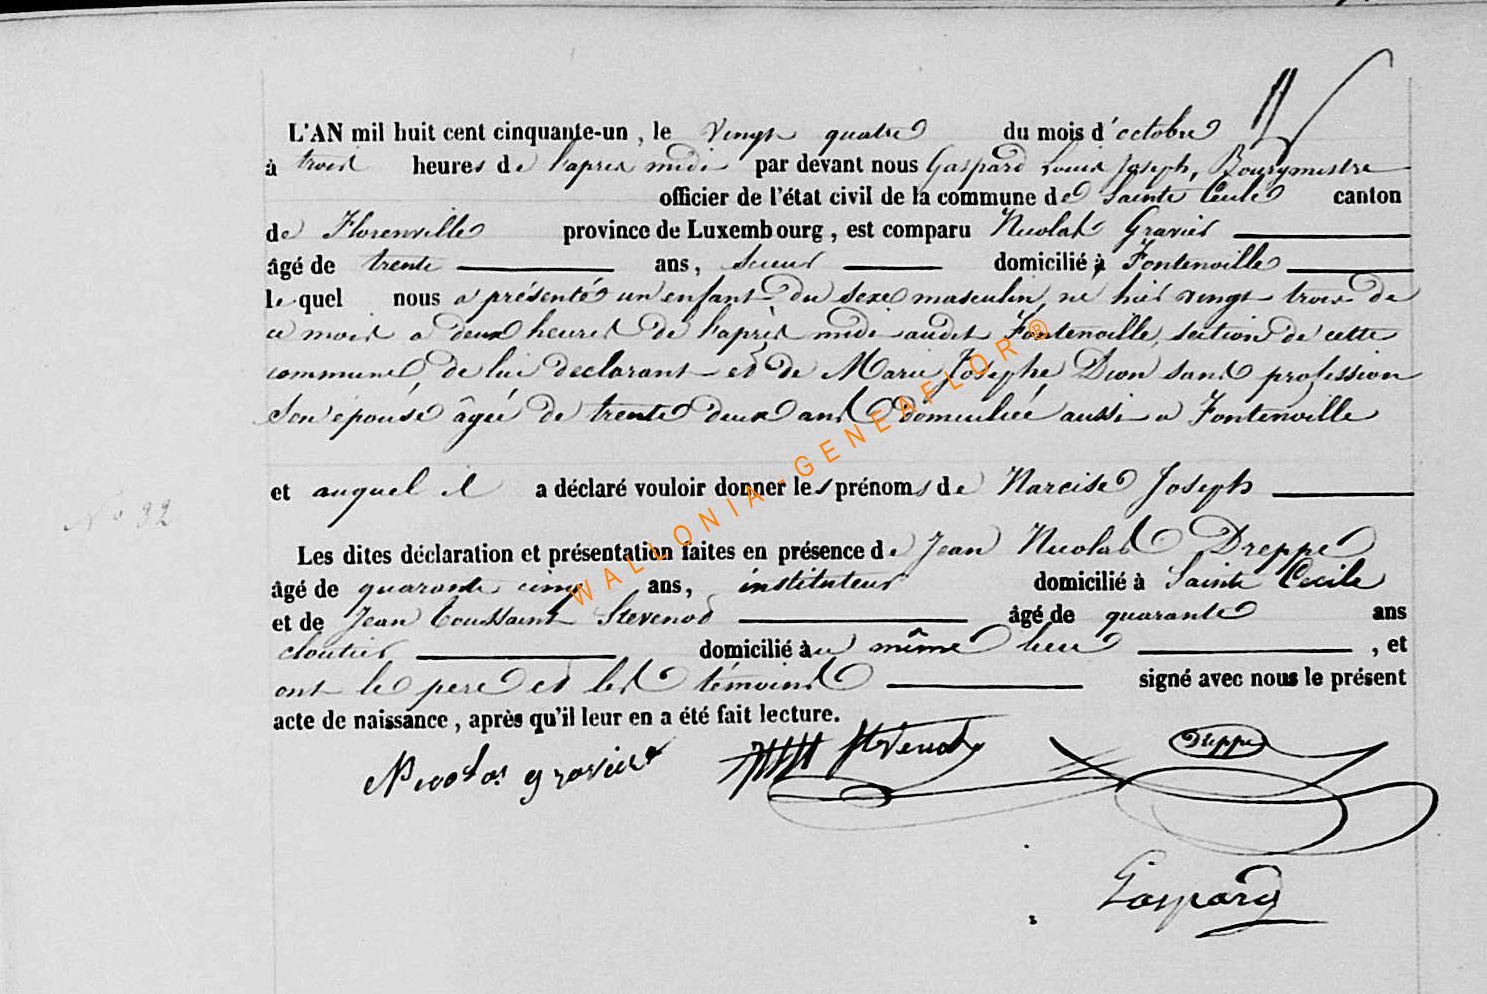 L'AN mil huit cent cinquante-un, le vingt quatre du mois d'octobre
à trois heures de l'après midi par devant nous Gaspard Louis Joseph, Bourgmestre
officier de l'état civil de la commune de Sainte Cecile canton
de Florenville province de Luxembourg, est comparu Nicolas Gravier
âgé de trente ans, scieur domicilié à Fontenoille
le quel nous a présenté un enfant du sexe masculin, né hier vingt trois de
ce mois a deux heures de l'après midi audit Fontenoille, section de cette
commune, de lui declarant et de Marie Josephe Dion sans profession
son épouse âgée de trente deux ans domiciliée aussi a Fontenoille
et auquel il a déclaré vouloir donner les prénoms de Narcise Joseph
N° 32
Les dites déclaration et présentation faites en présence de Jean Nicolas Dreppe
âgé de quarante cinq ans, instituteur domicilié à Sainte Cecile
et de Jean Toussaint Stevenod âgé de quarante ans
cloutier domicilié au même lieu, et
ont le pere et les témoins signé avec nous le présent
acte de naissance, après qu'il leur en a été fait lecture.
Nicolas gravier Stevenod Dreppe
Gaspard
WALLONIA-GENEAFLOR®